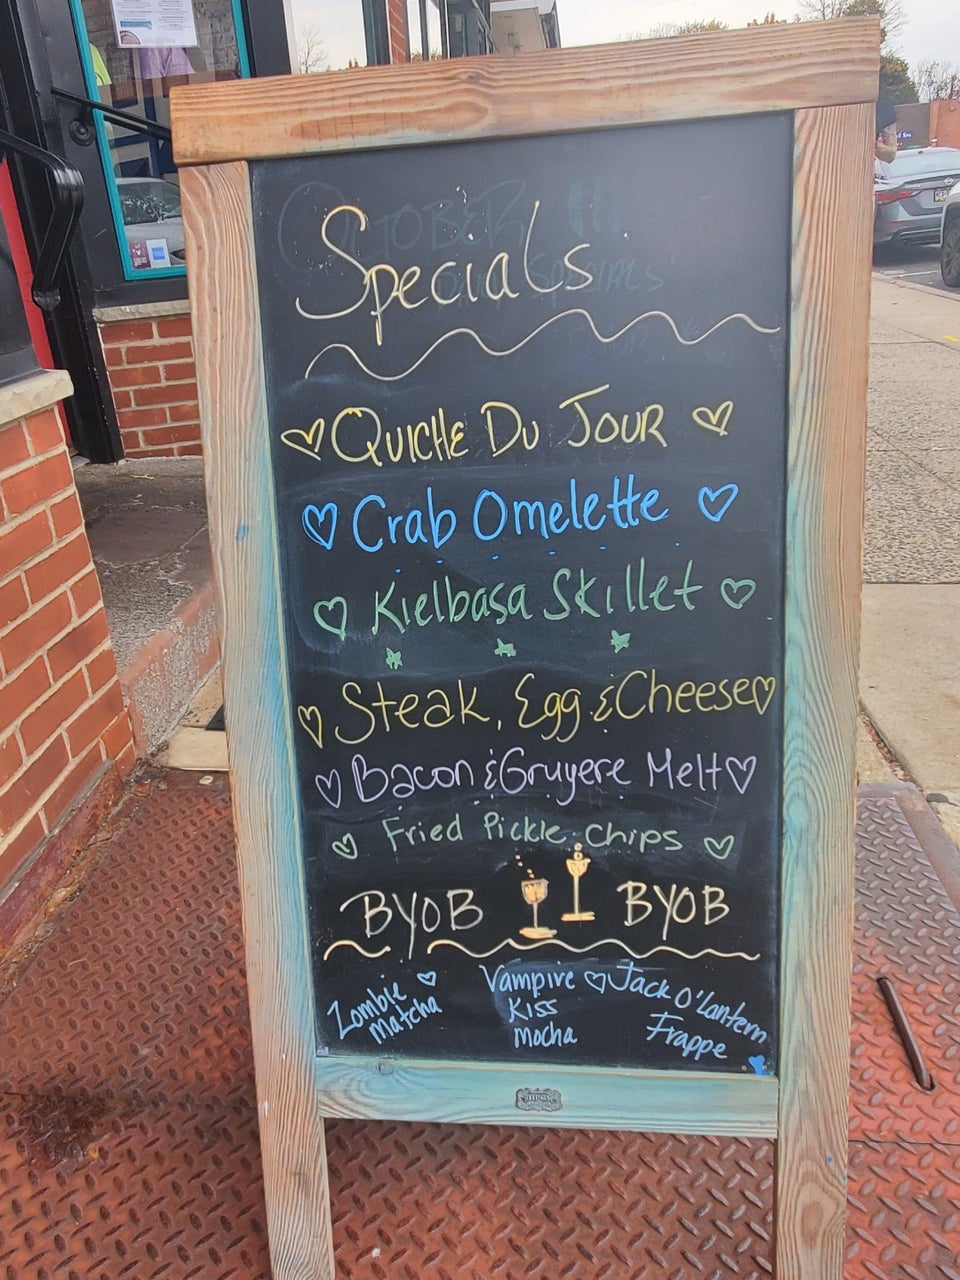 OCTOBER
Specials
Specials
Quiche Du Jour
Crab Omelette
Kielbasa Skillet
Steak, Egg & Cheese
Bacon & Gruyere Melt
Fried Pickle Chips
BYOB BYOB
Zombie
Matcha
Vampire
Kiss
Mocha
Jack O'Lantern
Frappe